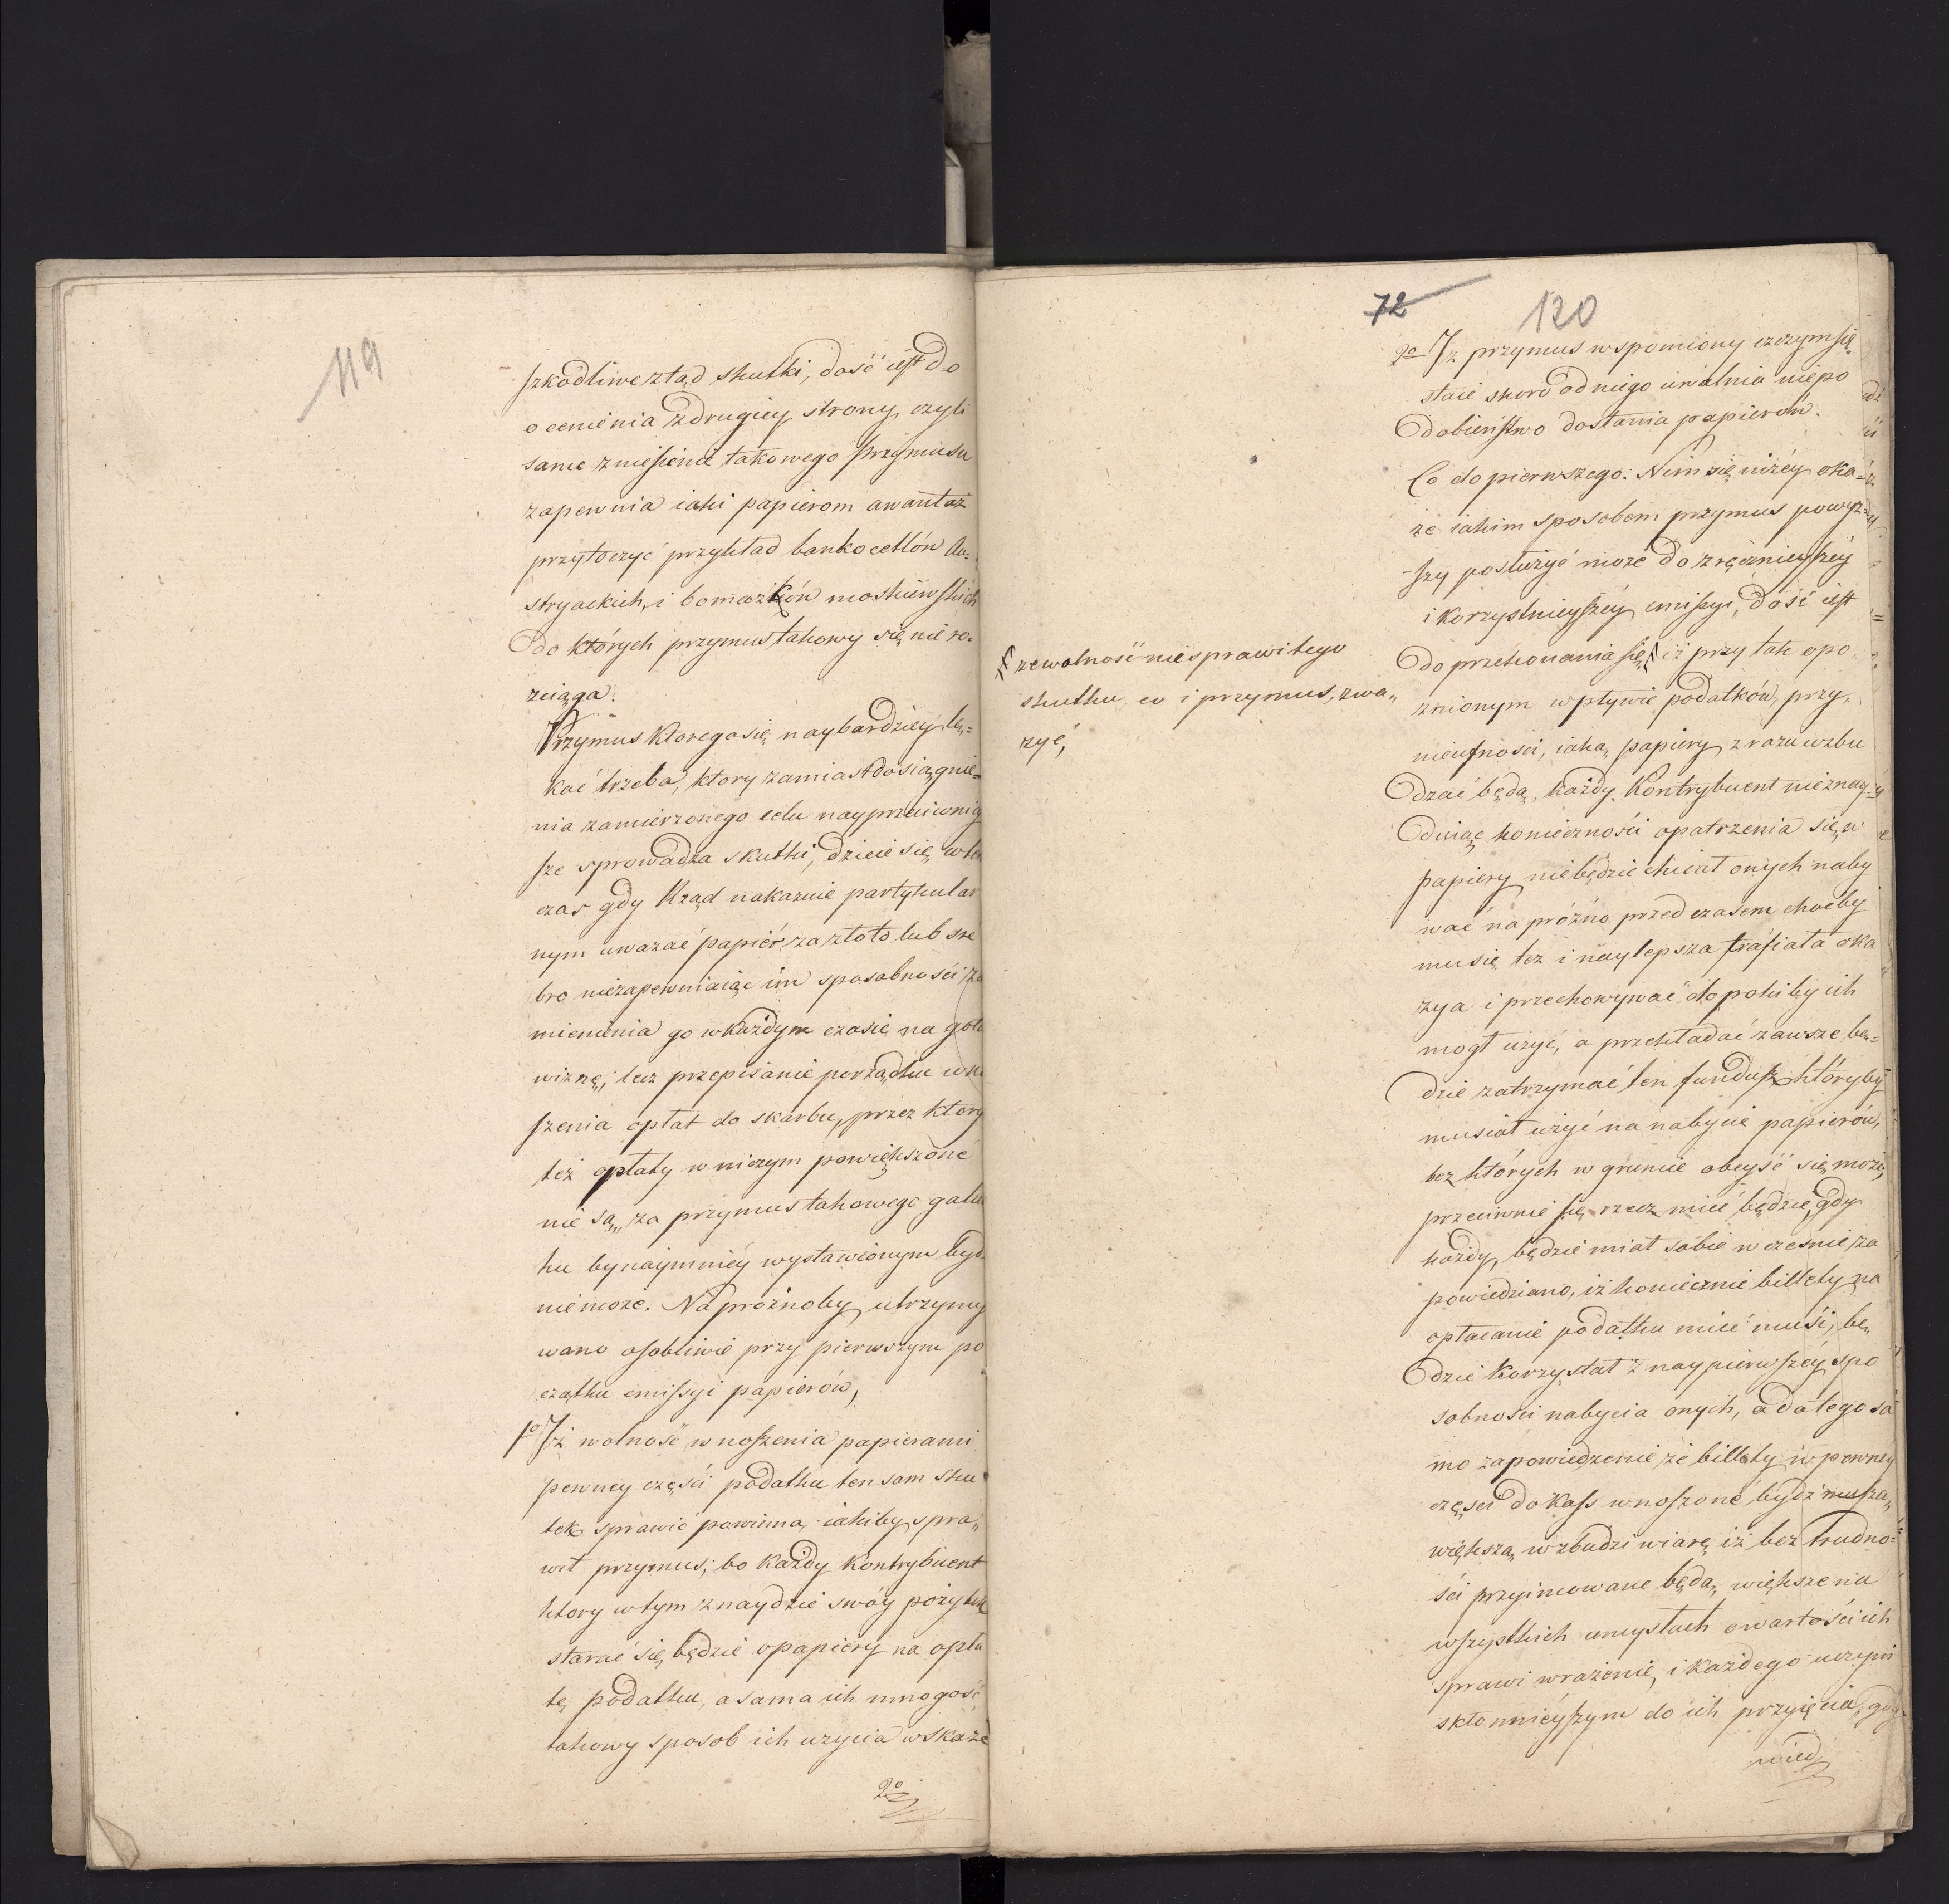 119
szkodliwe ztąd skutki, dość iest do
ocenienia z drugiey strony, czyli
same zniesienie takowego przymusu
zapewnia iaki papierom awantaż
przytoczyć przykład bankocetlów Au=
stryackich, i bomażków moskiewskich
do których przymus takowy się nie ro=
zciąga.
Przymus ktorego się naybardziey lę=
kać trzeba, ktory zamiast dosiągnie=
nia zamierzonego celu nayprzeciwniey
sze sprowadza skutki, dzieie się w ten
czas gdy Rząd nakazuie partykular
nym uwazać papiér za złoto lub sre
bro niezapewniaiąc im sposobności za
mienienia go w każdym czasie na goto
wiznę; lecz przepisanie porządku wno
szenia opłat do skarbu, przez ktory
też opłaty w niczym powiększone
nie są, za przymus takowego gatu
ku bynaymniéy wystawionym bydź
nie może. Napróżnoby utrzymy
wano osobliwie przy pierwszym po
czątku emissyi papierów,
1o Iż wolność wnoszenia papierami
pewney części podatku ten sam sku
tek sprawić powinna, iakiby spra„
wił przymus; bo każdy Kontrybuent
ktory w tym znaydzie swóy pożytek
starać się będzie o papiery na opła
tę podatku, a sama ich mnogość
takowy sposob ich uzycia wskaże
2o
72
120
2o Iż przymus wspomiony czczym się
staie skoro od niego uwalnia niepo
dobieństwo dostania papierów.
Co do pierwszego: Nim się niżéy oka=
że iakim sposobem przymus powyż=
szy posłużyć może do zręcznieyszéy
i korzystnieyszéy emissyi, dość iest
do przekonania się # iż przy tak opo„
znionym wpływie podatków, przy„
nieufności, iaką papiery z razu wzbu
dzać będą, każdy Kontrybuent nieznay=
duiąc konieczności opatrzenia się w
papiery niebędzie chciał onych naby
wać na próżno przed czasem, choćby
mu się tez i naylepsza trafiała oka
zya i przechowywać dopokiby ich
mogł użyć, a przekładać zawsze bę=
dzie zatrzymać ten fundusz któryby
musiał użyć na nabycie papierów,
bez których w gruncie obeyść się może,
przeciwnie się rzecz mieć będzie, gdy
każdy, będzie miał sobie wcześnie za
powiedziano, iż koniecznie billety na
opłacanie podatku mieć musi, bę„
dzie korzystał z naypierwszéy spo
sobności nabycia onych, a do tego sa
mo zapowiedzenie że billety w pewney
części do Kass wnoszone bydź muszą,
większą wzbudzi wiarę iż bez trudno=
ści przyimowane będą, większe na
wszystkich umysłach o wartości ich
sprawi wrażenie, i każdego uczyni
skłonnieyszym do ich przyięcia, gdy
wied
# ze wolność nie sprawi tego
skutku, co i przymus, zwa„
żyć,